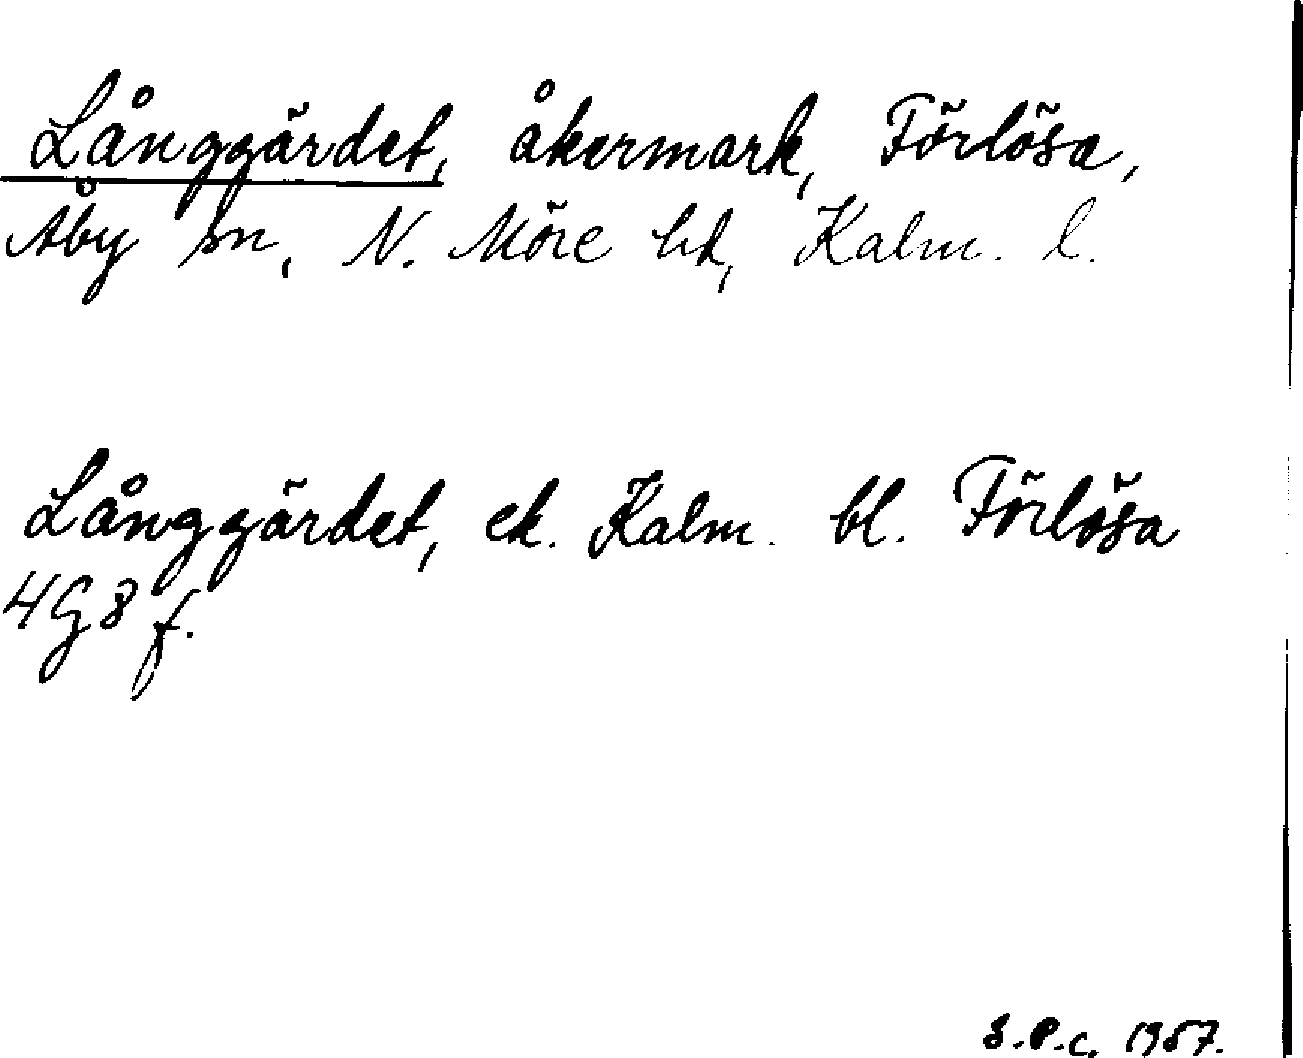 Långgärdet, åkermark, Förlösa,
Åby sn, N. Möre hd, Kalm. l.
Långgärdet, ek. Kalm. bl. Förlösa
4G8 f.
S.P.c. 1957.